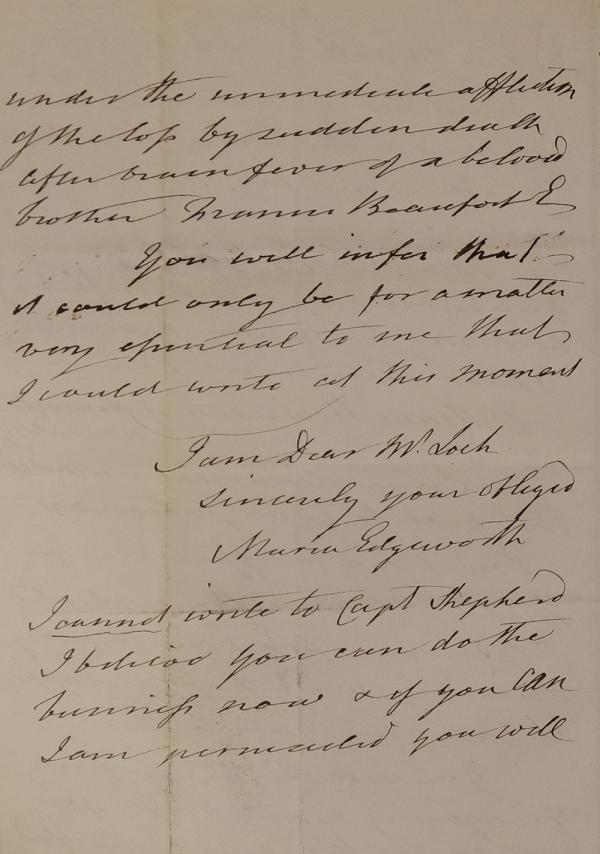 under the immediate affliction
of the loss by sudden death
after brain fever of a beloved
brother Francis Beaufort E
You will infer that
it could only be for a matter
very essential to me that
I could write at this moment
I am Dear Mr. Loch
sincerely your obliged
Maria Edgeworth
I cannot write to Capt Shepherd
I believe you can do the
business now & if you can
I am persuaded you will